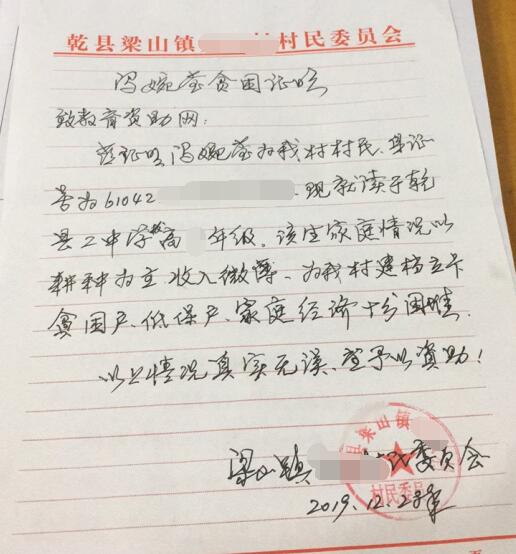 乾县梁山镇 村民委员会
冯婉莹贫困证明
致教育资助网:
兹证明冯婉莹为我村村民、身证
号为61042 现就读于乾
县二中学校高 年级。该生家庭情况以
耕种为主,收入微薄、为我村建档立卡
贫困户、低保户、家庭经济十分困难.
以上情况真实无误,望予以资助!
梁山镇 民委员会
2019.12.2
县梁山镇
村民委员